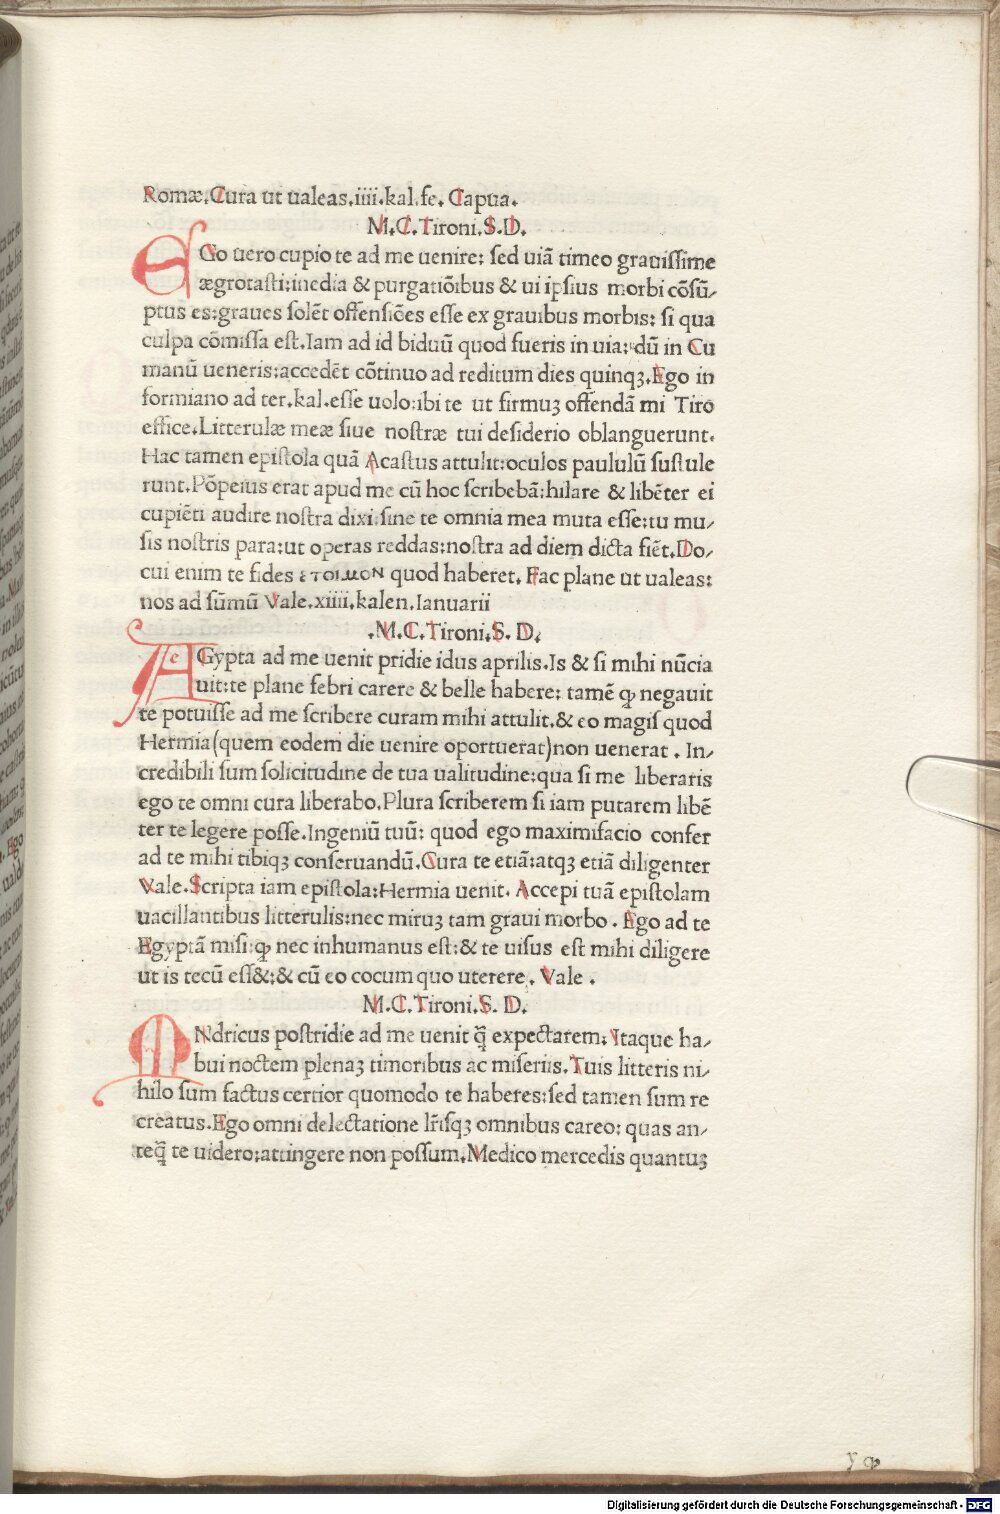 Romæ.Cura ut ualeas.iiii.kal.fe. Capua.
M.C.Tironi.S.D.
EGo uero cupio te ad me uenire: sed uiā timeo grauissime
ægrotasti:inedia & purgatiōibus & ui ipsius morbi cōsū-
ptus es:graues solēt offensiōes esse ex grauibus morbis: si qua
culpa cōmissa est.Iam ad id biduū quod fueris in uia:dū in Cu
manū ueneris:accedēt cōtinuo ad reditum dies quinqꝫ.Ego in
formiano ad ter.kal.esse uolo:ibi te ut firmuꝫ offendā mi Tiro
effice.Litterulæ meæ siue nostræ tui desiderio oblanguerunt.
Hac tamen epistola quā Acastus attulit:oculos paululū sustule
runt.Pōpeius erat apud me cū hoc scribebā:hilare & libēter ei
cupiēti audire nostra dixi.sine te omnia mea muta esse:tu mu-
sis nostris para:ut operas reddas:nostra ad diem dicta fiēt.Do-
cui enim te fides ετοιμον quod haberet. Fac plane ut ualeas:
nos ad sūmū Vale.xiiii.kalen.Ianuarii
.M.C.Tironi.S. D.
AeGypta ad me uenit pridie idus aprilis.Is & si mihi nūcia
uit:te plane febri carere & belle habere: tamē ꝙ negauit
te potuisse ad me scribere curam mihi attulit.& eo magis quod
Hermia(quem eodem die uenire oportuerat)non uenerat . In-
credibili sum solicitudine de tua ualitudine:qua si me liberaris
ego te omni cura liberabo.Plura scriberem si iam putarem libē
ter te legere posse.Ingeniū tuū: quod ego maximifacio confer
ad te mihi tibiqꝫ conseruandū.Cura te etiā:atqꝫ etiā diligenter
Vale.Scripta iam epistola:Hermia uenit. Accepi tuā epistolam
uacillantibus litterulis:nec miruꝫ tam graui morbo . Ego ad te
Egyptā misi:ꝙ nec inhumanus est:& te uisus est mihi diligere
ut is tecū ess&:& cū eo cocum quo uterere. Vale .
M.C.Tironi.S. D.
ANdricus postridie ad me uenit q̄ expectarem: Itaque ha-
bui noctem plenaꝫ timoribus ac miseriis.Tuis litteris ni-
hilo sum factus certior quomodo te haberes:sed tamen sum re
creatus.Ego omni delectatione lr̄isqꝫ omnibus careo: quas an-
teq̄ te uidero:attingere non possum.Medico mercedis quantuꝫ
Digitalisierung gefördert durch die Deutsche Forschungsgemeinschaft - DFG